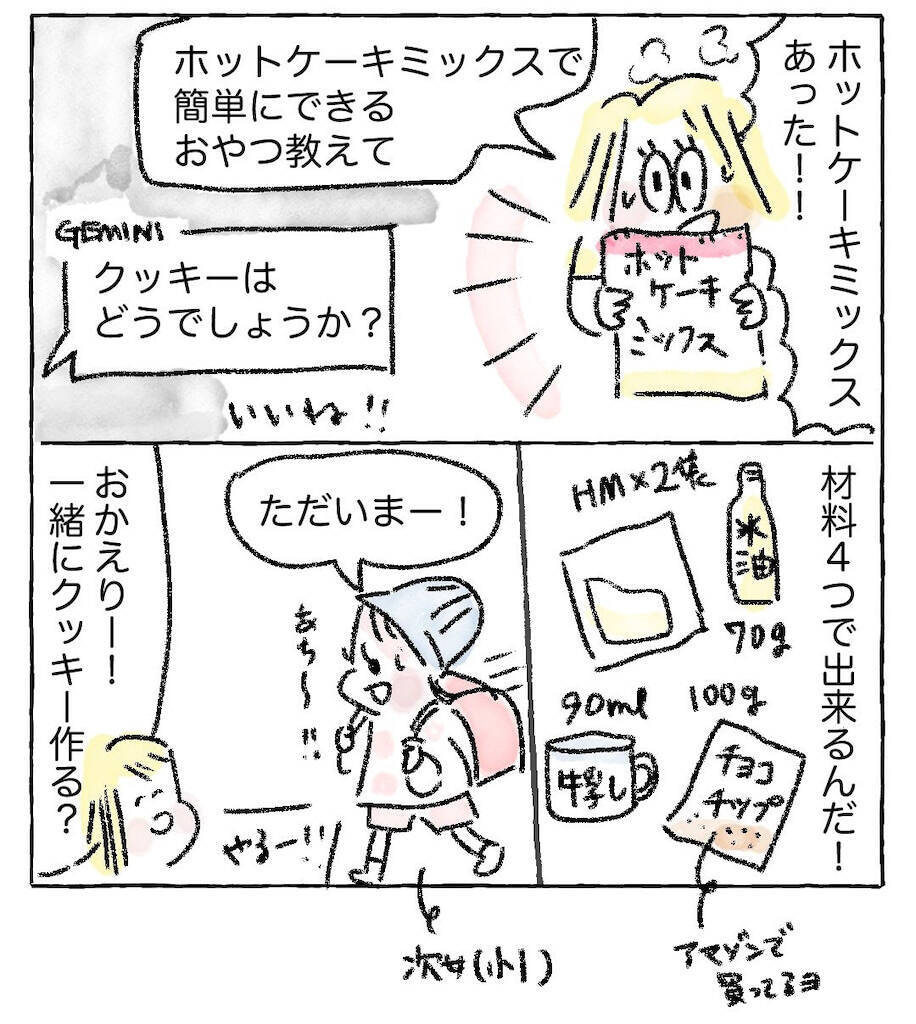 ホットケーキミックス
あった！！
ホットケーキミックスで
簡単にできる
おやつ教えて
ホット
ケーキ
ミックス
GEMINI
クッキーは
どうでしょうか？
いいね!!
材料４つで出来るんだ！
HM×2袋
米
油
70g
90ml
牛乳
100g
チョコ
チップ
アマゾンで
買ってるヨ
ただいまー！
あち〜!!
おかえりー！
一緒にクッキー作る？
やるー!!
次女(小1)